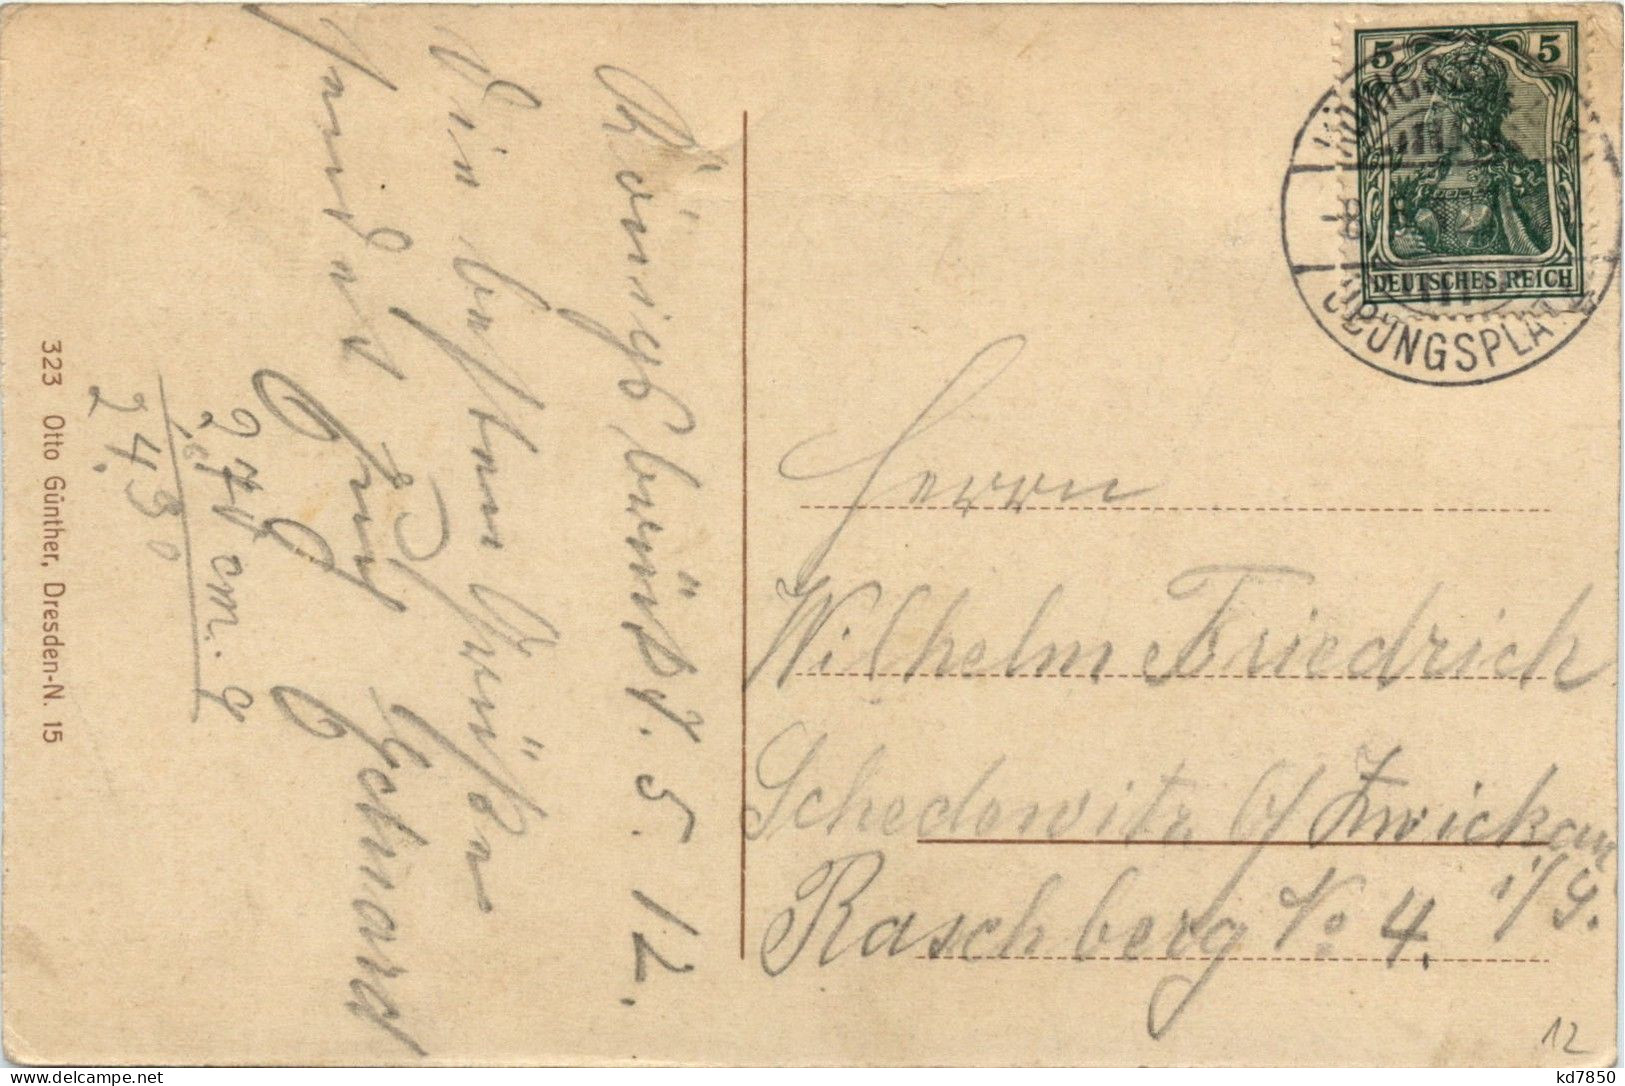 Königsbrück d. 5. 12.
Die besten Grüßen
sendet Euch
Gebhard
274 cm. 9
243
323 Otto Günther, Dresden-N. 15
5 5
DEUTSCHES REICH
KÖNIGSBRÜCK
ÜBUNGSPLATZ
Herrn
Wilhelm Friedrich
Schedewitz b/ Zwickau
i/S.
Raschberg No 4.
12
kd7850